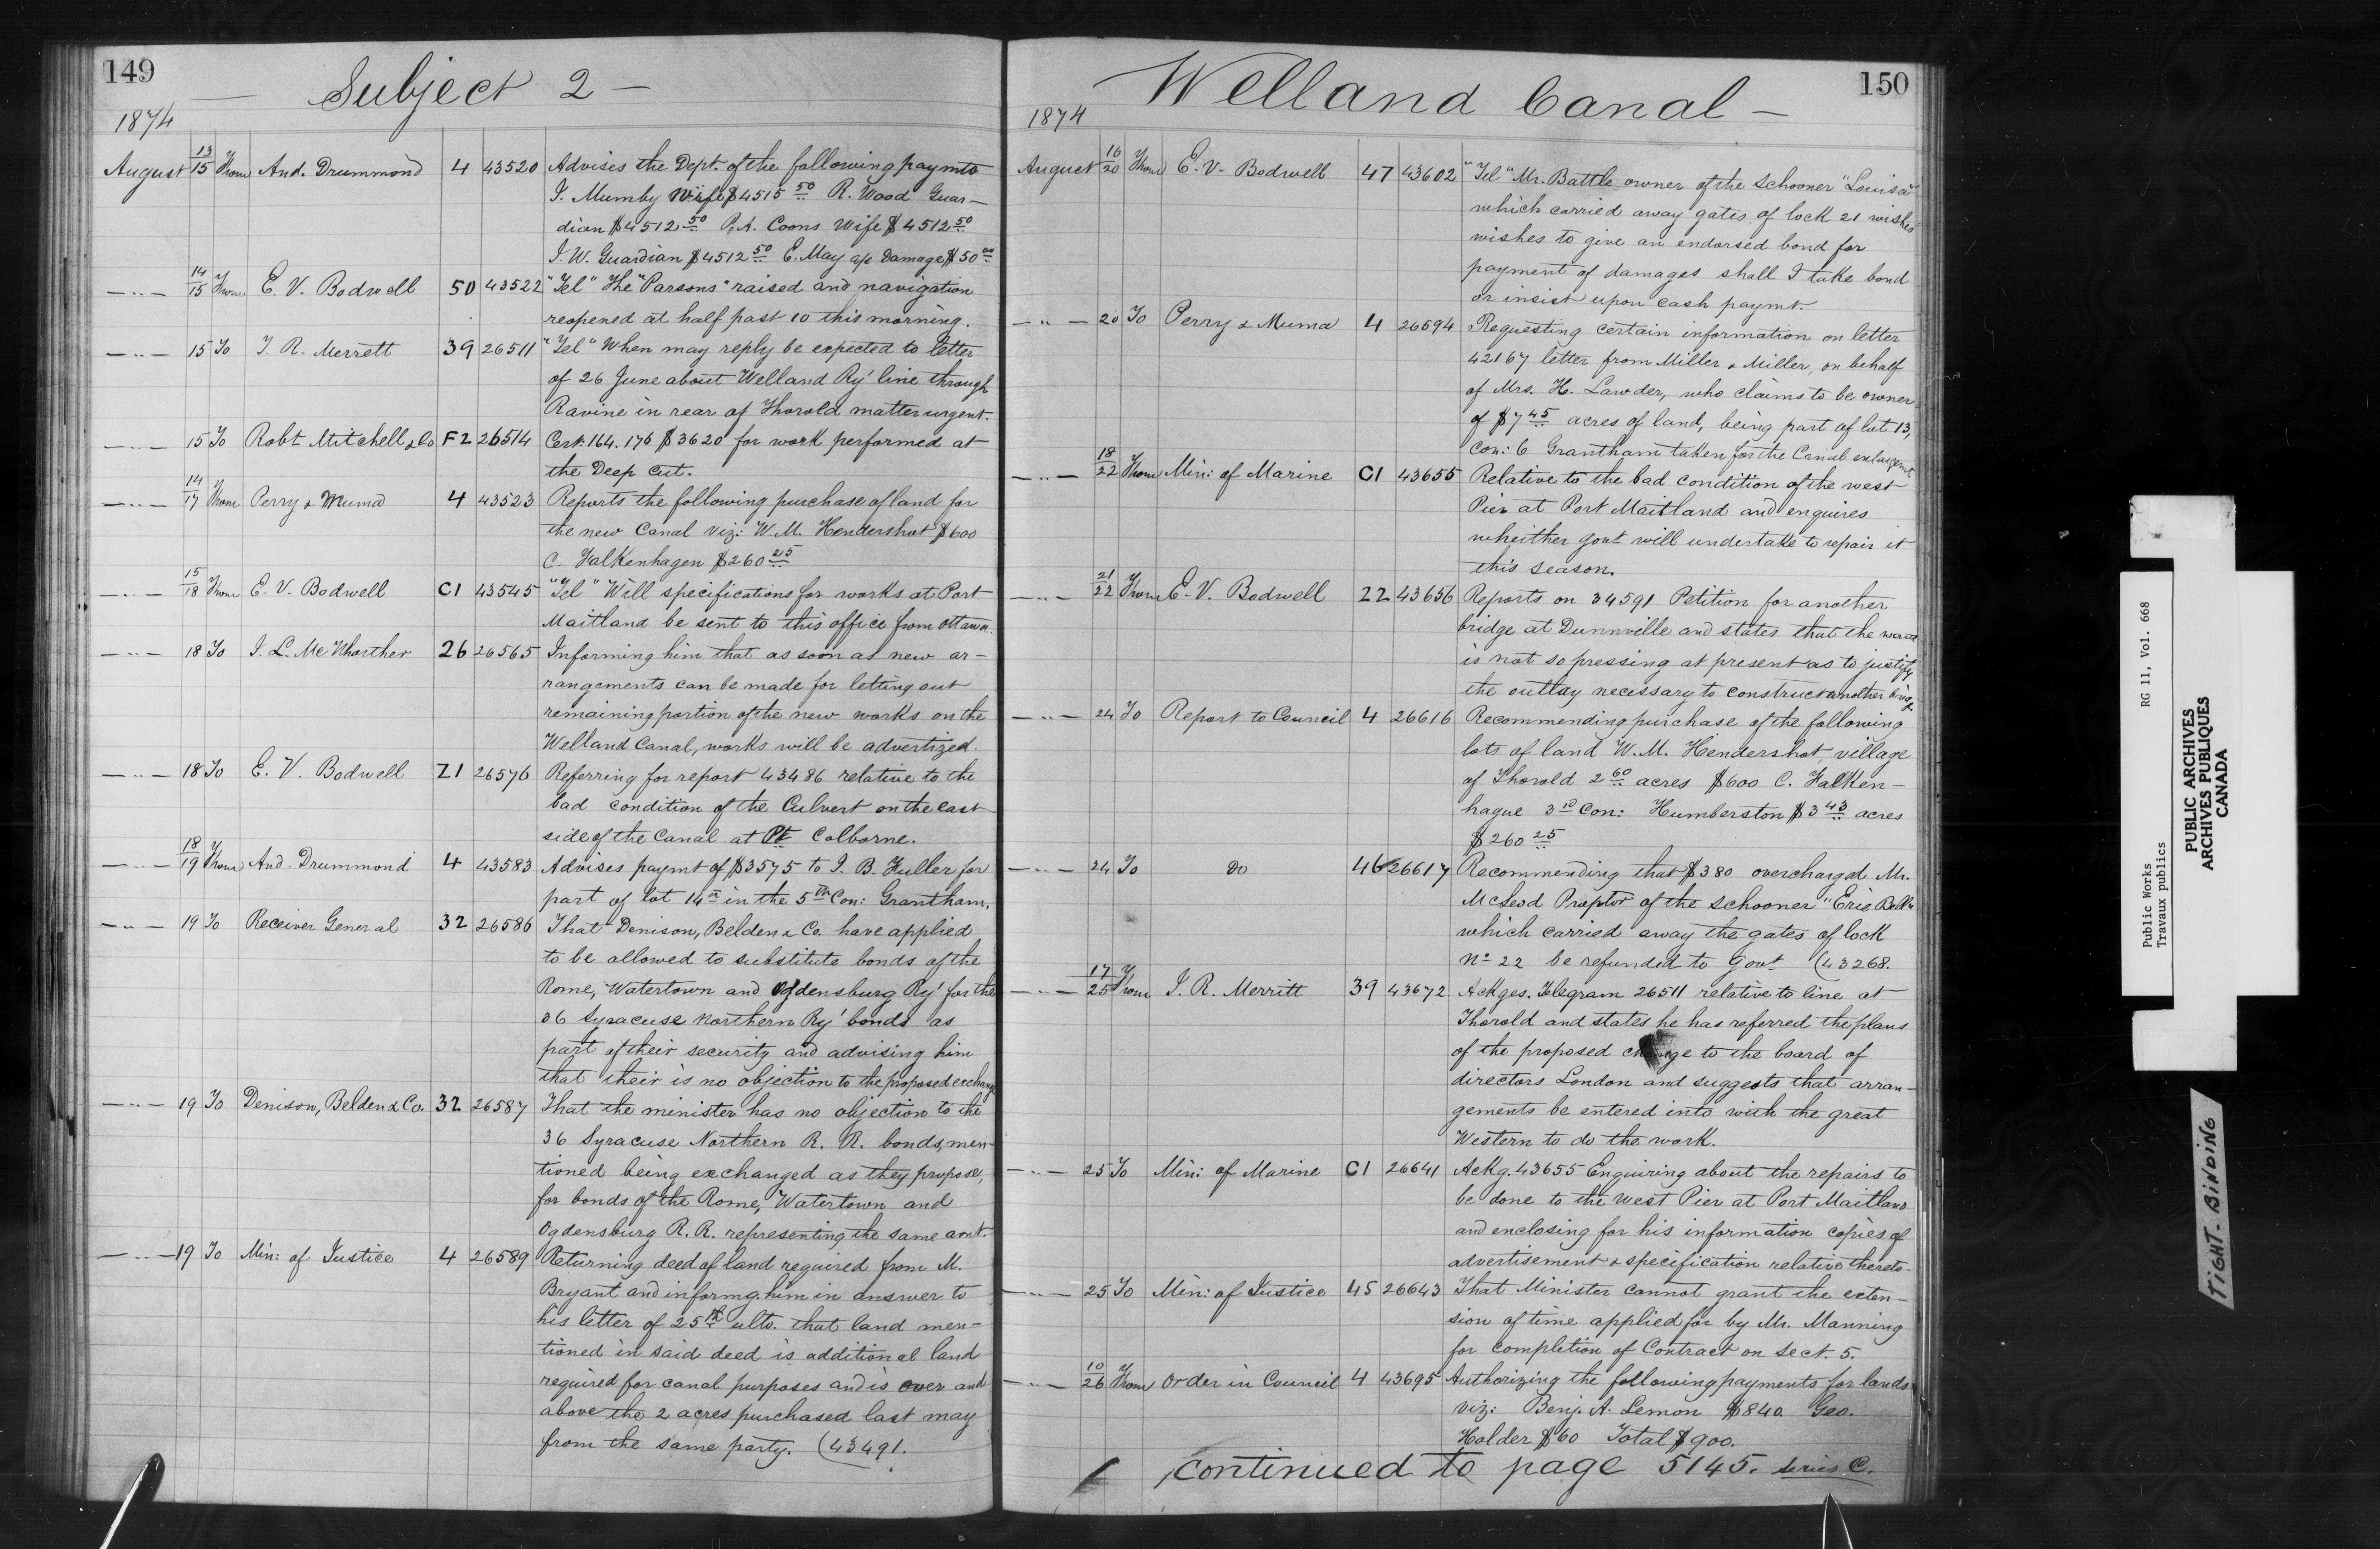 149
Subject 2 —
1874
August 13/15 From And. Drummond 4 43520 Advises the Dept. of the following paymts
I. Mumby Wife $4515 50 R. Wood Guar-
dian $4512 50 P. A. Coons Wife $4512 50
I. W. Guardian $4512 50 E. May a/c Damage $50 00
— " — 14/15 From E. V. Bodwell 50 43522 "Tel" The "Parsons" raised and navigation
reopened at half past 10 this morning.
— " — 15 To I. R. Merrett 39 26511 "Tel" When may reply be expected to letter
of 26 June about Welland Ry' line through
Ravine in rear of Thorold matter urgent.
— " — 15 To Robt Mitchell & Co F2 26514 Cert. 164. 176 $3620 for work performed at
the Deep Cut.
— " — 14/17 From Perry & Muma 4 43523 Reports the following purchase of land for
the new Canal viz: W. M. Hendershot $600
C. Falkenhagen $260 25
— " — 15/18 From E. V. Bodwell C1 43545 "Tel" Will specifications for works at Port
Maitland be sent to this office from Ottawa.
— " — 18 To I. L. McWhorther 26 26565 Informing him that as soon as new ar-
rangements can be made for letting out
remaining portion of the new works on the
Welland Canal, works will be advertized.
— " — 18 To E. V. Bodwell Z1 26576 Referring for report 43486 relative to the
bad condition of the Culvert on the east
side of the Canal at Pt Colborne.
— " — 18/19 From And. Drummond 4 43583 Advises paymt of $3575 to I. B. Fuller for
part of lot 14 in the 5th Con: Grantham.
— " — 19 To Receiver General 32 26586 That Denison, Belden & Co. have applied
to be allowed to substitute bonds of the
Rome, Watertown and Ogdensburg Ry' for the
36 Syracuse Northern Ry' bonds as
part of their security and advising him
that their is no objection to the proposed exchange
— " — 19 To Denison, Belden & Co. 32 26587 That the minister has no objection to the
36 Syracuse Northern R. R. bonds, men-
tioned being exchanged as they propose,
for bonds of the Rome, Watertown and
Ogdensburg R. R. representing the same amt.
— " — 19 To Min: of Justice 4 26589 Returning deed of land required from M.
Bryant and informg. him in answer to
his letter of 25th ulto. that land men-
tioned in said deed is additional land
required for canal purposes and is over and
above the 2 acres purchased last may
from the same party. (43491.
150
Welland Canal —
1874
August 16/20 From E. V. Bodwell 47 43602 "Tel" Mr. Battle owner of the Schooner "Louisa"
which carried away gates of lock 21 wishes
wishes to give an endorsed bond for
payment of damages shall I take bond
or insist upon cash paymt.
— " — 20 To Perry & Muma 4 26594 Requesting certain information on letter
42167 letter from Miller & Miller, on behalf
of Mrs. H. Lawder, who claims to be owner
of $7 45 acres of land, being part of lot 13,
Con: 6 Grantham taken for the Canal enlargemt
— " — 18/22 From Min: of Marine C1 43655 Relative to the bad condition of the west
Pier at Port Maitland and enquires
wheither govt will undertake to repair it
this season.
— " — 21/22 From E. V. Bodwell 22 43656 Reports on 34591 Petition for another
bridge at Dunnville and states that the want
is not so pressing at present as to justify
the outlay necessary to construct another bridge
— " — 24 To Report to Council 4 26616 Recommending purchase of the following
lots of land W. M. Hendershot, village
of Thorold 2 60 acres $600 C. Falken-
hague 3rd Con: Humberston $3 43 acres
$260 25
— " — 24 To Do 46 26617 Recommending that $380 overcharged Mr.
McLeod Proptor of the schooner "Erie Belle"
which carried away the gates of lock
No 22 be refunded to Govt (43268.
— " — 17/25 From I. R. Merritt 39 43672 Ackges. Telegram 26511 relative to line at
Thorold and states he has referred the plans
of the proposed change to the board of
directors London and suggests that arran-
gements be entered into with the great
Western to do the work.
— " — 25 To Min: of Marine C1 26641 Ackg. 43655 Enquiring about the repairs to
be done to the West Pier at Port Maitland
and enclosing for his information copies of
advertisement & specification relative thereto.
— " — 25 To Min: of Justice 45 26643 That Minister cannot grant the exten-
sion of time applied for by Mr. Manning
for completion of Contract on Sect. 5.
— " — 10/26 From Order in Council 4 43695 Authorizing the following payments for lands
viz: Benj. A. Lemon $840. Geo.
Holder $60 Total $900.
continued to page 5145. series C.
Public Works RG 11, Vol. 668
Travaux publics
PUBLIC ARCHIVES
ARCHIVES PUBLIQUES
CANADA
TIGHT BINDING